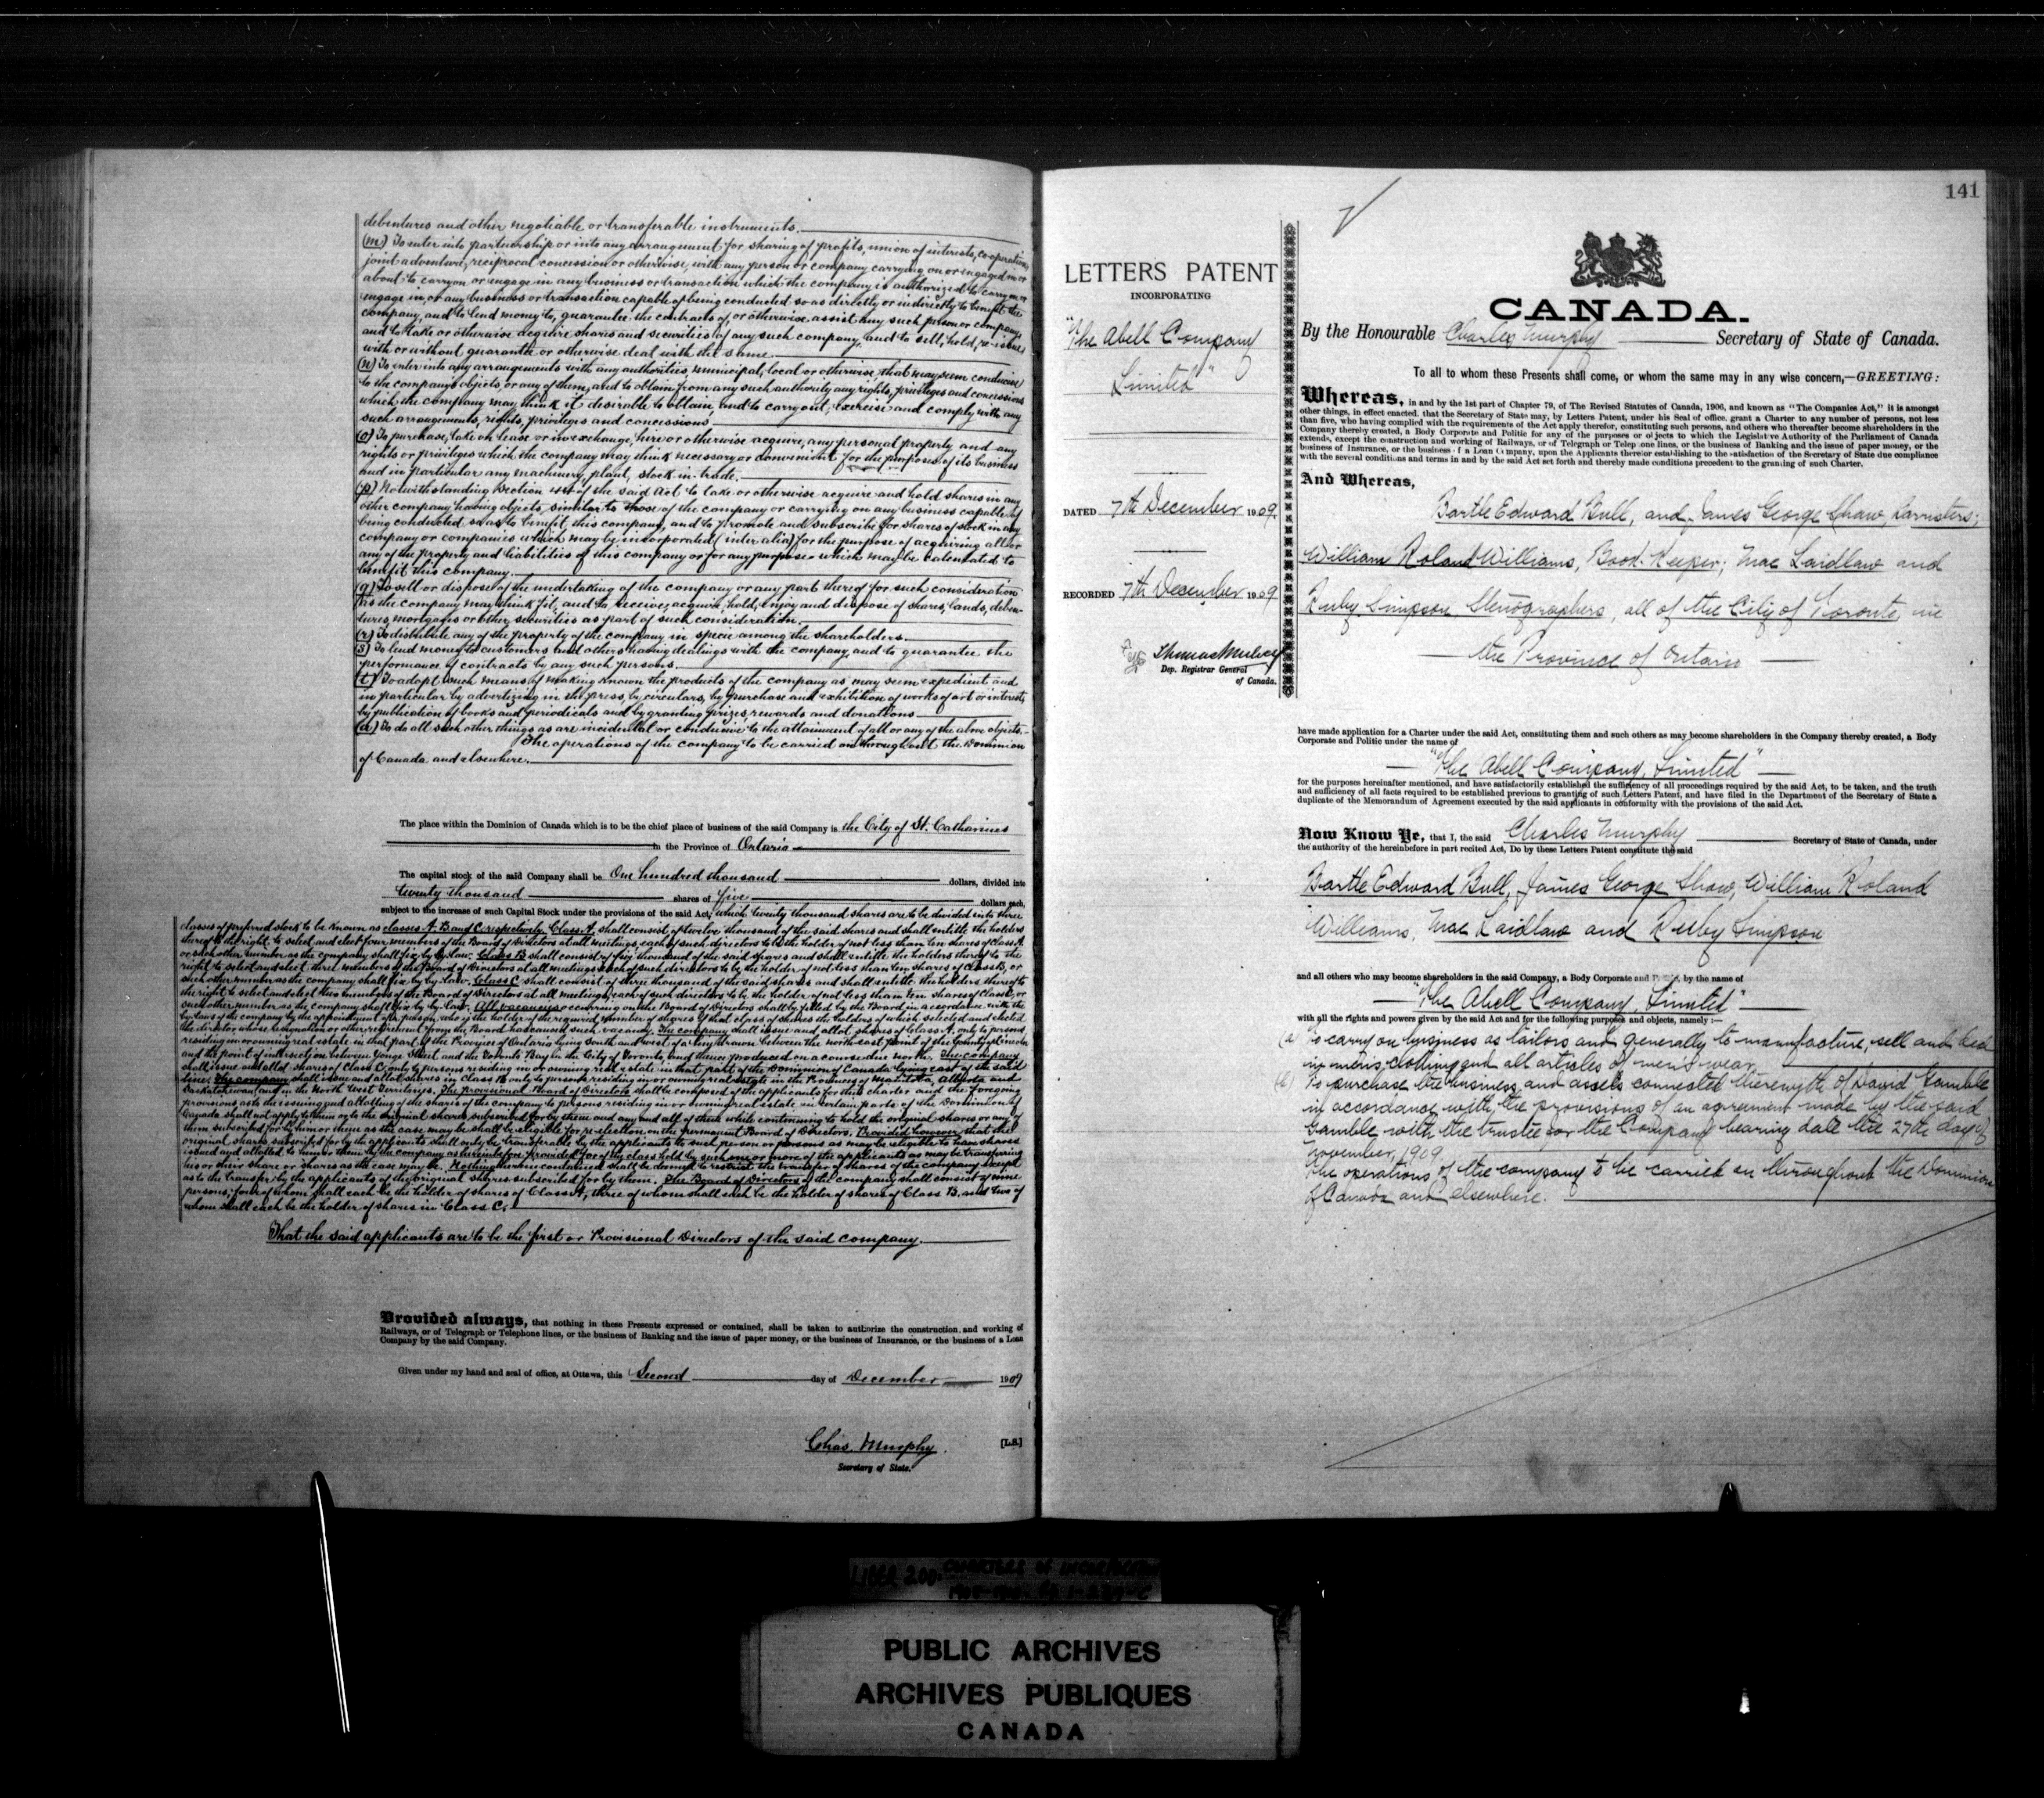 debentures and other negotiable or transferable instruments.
(m) To enter into partnership or into any arrangement for sharing of profits, union of interests, co-operation,
joint adventure, reciprocal concession or otherwise, with any person or company carrying on or engaged in or
about to carry on or engage in any business or transaction which the company is authorized to carry on or
engage in, or any business or transaction capable of being conducted so as directly or indirectly to benefit the
company, and to lend money to, guarantee the contracts of, or otherwise assist any such person or company,
and to take or otherwise acquire shares and securities of any such company, and to sell, hold, re-issue
with or without guarantee or otherwise deal with the same.
(n) To enter into any arrangements with any authorities, municipal, local or otherwise, that may seem conducive
to the company's objects, or any of them, and to obtain from any such authority any rights, privileges and concessions
which the company may think it desirable to obtain, and to carry out, exercise and comply with any
such arrangements, rights, privileges and concessions.
(o) To purchase, take on lease or in exchange, hire or otherwise acquire, any personal property and any
rights or privileges which the company may think necessary or convenient for the purposes of its business
and in particular any machinery, plant, stock-in-trade.
(p) Notwithstanding section 44 of the said Act to take or otherwise acquire and hold shares in any
other company having objects similar to those of the company or carrying on any business capable of
being conducted so as to benefit this company, and to promote and subscribe for shares of stock in any
company or companies which may be incorporated (inter alia) for the purpose of acquiring all or
any of the property and liabilities of this company or for any purpose which may be calculated to
benefit this company.
(q) To sell or dispose of the undertaking of the company or any part thereof for such consideration
as the company may think fit, and to receive, acquire, hold, enjoy and dispose of shares, lands, deben-
tures, mortgages or other securities as part of such consideration.
(r) To distribute any of the property of the company in specie among the shareholders.
(s) To lend money to customers and others having dealings with the company, and to guarantee the
performance of contracts by any such persons.
(t) To adopt such means of making known the products of the company as may seem expedient and
in particular by advertizing in the press, by circulars, by purchase and exhibition of works of art or interest,
by publication of books and periodicals and by granting prizes, rewards and donations.
(u) To do all such other things as are incidental or conducive to the attainment of all or any of the above objects.
The operations of the company to be carried on throughout the Dominion
of Canada and elsewhere.
The place within the Dominion of Canada which is to be the chief place of business of the said Company is the City of St. Catharines
in the Province of Ontario
The capital stock of the said Company shall be One hundred thousand dollars, divided into
twenty thousand shares of five dollars each,
subject to the increase of such Capital Stock under the provisions of the said Act, which twenty thousand shares are to be divided into three
classes of preferred stock to be known as classes A. B and C respectively. Class A, shall consist of twelve thousand of the said shares and shall entitle the holders
thereof to the right to select and elect four members of the Board of Directors at all meetings, each of such directors to be the holder of not less than ten shares of Class A
or such other number as the company shall fix by by-law. Class B shall consist of five thousand of the said shares and shall entitle the holders thereof to the
right to select and elect three members of the Board of Directors at all meetings each of such directors to be the holder of not less than ten shares of Class B, or
such other number as the company shall fix by by-law. Class C shall consist of three thousand of the said shares and shall entitle the holders thereof to
the right to select and elect two members of the Board of Directors at all meetings, each of such directors to be the holder of not less than ten shares of Class C, or
such other number as the company shall fix by by-law. All vacancies occurring on the Board of Directors shall be filled by the Board in accordance with the
by-laws of the company by the appointment of a person who is the holder of the required number of shares of that class of shares the holders of which selected and elected
the director, whose resignation or other retirement from the Board has caused such vacancy. The company shall issue and allot shares of Class A, only to persons
residing in or owning real estate in that part of the Province of Ontario lying south and west of a line drawn between the north-east point of the County of Lincoln
and the point of intersection between Yonge Street and the Toronto Bay in the City of Toronto, and thence produced on a course due north. The company
shall issue and allot shares of Class C, only to persons residing in or owning real estate in that part of the Dominion of Canada lying east of the said
line. The company shall issue and allot shares in Class B only to persons residing in or owning real estate in the Provinces of Manitoba, Alberta and
Saskatchewan, and in the North West Territories. The provisional Board of Directors shall be composed of the applicants for this charter and the foregoing
provisions as to the issuing and allotting of the shares of the company to persons residing in or owning real estate in certain parts of the Dominion of
Canada shall not apply to them as to the original shares subscribed for by them and any and all of them while continuing to hold the original shares or any of
them subscribed for by him or them as the case may be shall be eligible for re-election on the permanent Board of Directors. Provided however, that the
original shares subscribed for by the applicants shall only be transferable by the applicants to such person or persons as may be eligible to have shares
issued and allotted to him or them by the company as hereinbefore provided for of the class held by such one or more of the applicants as may be transferring
his or their share or shares as the case may be. Nothing herein contained shall be deemed to restrict the transfer of shares of the company except
as to the transfer by the applicants of the original shares subscribed for by them. The Board of Directors of the company shall consist of nine
persons, four of whom shall each be the holder of shares of Class A, three of whom shall each be the holder of shares of Class B, and two of
whom shall each be the holder of shares in Class C.
That the said applicants are to be the first or Provisional Directors of the said company.
Provided always, that nothing in these Presents expressed or contained, shall be taken to authorize the construction and working of
Railways, or of Telegraph or Telephone lines, or the business of Banking and the issue of paper money, or the business of Insurance, or the business of a Loan
Company by the said Company.
Given under my hand and seal of office, at Ottawa, this Second day of December 1909
Chas. Murphy. [L.S.]
Secretary of State.
141
LETTERS PATENT
INCORPORATING
"The Abell Company
Limited"
DATED 7th December 1909.
RECORDED 7th December 1909
Thomas Mulvey
Dep. Registrar General
of Canada.
CANADA.
By the Honourable Charles Murphy Secretary of State of Canada.
To all to whom these Presents shall come, or whom the same may in any wise concern,—GREETING:
Whereas, in and by the 1st part of Chapter 79, of The Revised Statutes of Canada, 1906, and known as "The Companies Act," it is amongst
other things, in effect enacted, that the Secretary of State may, by Letters Patent, under his Seal of office, grant a Charter to any number of persons, not less
than five, who having complied with the requirements of the Act apply therefor, constituting such persons, and others who thereafter become shareholders in the
Company thereby created, a Body Corporate and Politic for any of the purposes or objects to which the Legislative Authority of the Parliament of Canada
extends, except the construction and working of Railways, or of Telegraph or Telephone lines, or the business of Banking and the issue of paper money, or the
business of Insurance, or the business of a Loan Company, upon the Applicants therefor establishing to the satisfaction of the Secretary of State due compliance
with the several conditions and terms in and by the said Act set forth and thereby made conditions precedent to the granting of such Charter.
And Whereas,
Bartle Edward Bull, and James George Shaw, Barristers;
William Roland Williams, Book-Keeper; Mae Laidlaw and
Ruby Simpson, Stenographers, all of the City of Toronto, in
the Province of Ontario
have made application for a Charter under the said Act, constituting them and such others as may become shareholders in the Company thereby created, a Body
Corporate and Politic under the name of
"The Abell Company, Limited"
for the purposes hereinafter mentioned, and have satisfactorily established the sufficiency of all proceedings required by the said Act, to be taken, and the truth
and sufficiency of all facts required to be established previous to granting of such Letters Patent, and have filed in the Department of the Secretary of State a
duplicate of the Memorandum of Agreement executed by the said applicants in conformity with the provisions of the said Act.
Now Know Ye, that I, the said Charles Murphy Secretary of State of Canada, under
the authority of the hereinbefore in part recited Act, Do by these Letters Patent constitute the said
Bartle Edward Bull, James George Shaw, William Roland
Williams, Mae Laidlaw and Ruby Simpson
and all others who may become shareholders in the said Company, a Body Corporate and Politic, by the name of
"The Abell Company, Limited"
with all the rights and powers given by the said Act and for the following purposes and objects, namely:—
(a) To carry on business as tailors and generally to manufacture, sell and deal
in men's clothing and all articles of men's wear.
(b) To purchase the business and assets connected therewith of David Gamble
in accordance with the provisions of an agreement made by the said
Gamble with the trustee for the Company bearing date the 27th day of
November, 1909.
The operations of the company to be carried on throughout the Dominion
of Canada and elsewhere.
LIBER 200. CHARTERS OF INCORPORATION
PUBLIC ARCHIVES
ARCHIVES PUBLIQUES
CANADA